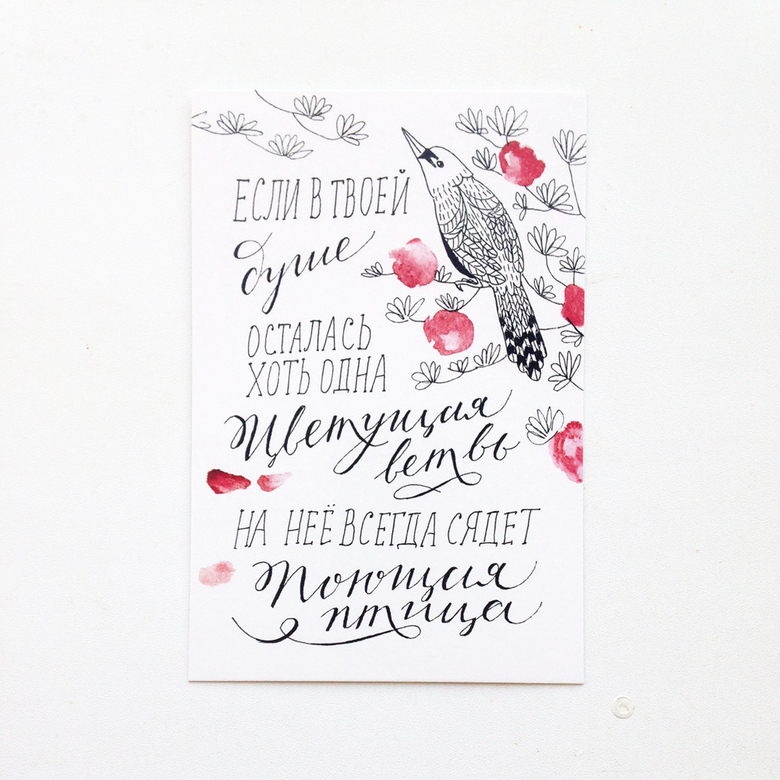 ЕСЛИ В ТВОЕЙ
душе
ОСТАЛАСЬ
ХОТЬ ОДНА
Цветущая
ветвь
НА НЕЁ ВСЕГДА СЯДЕТ
Поющая
птица